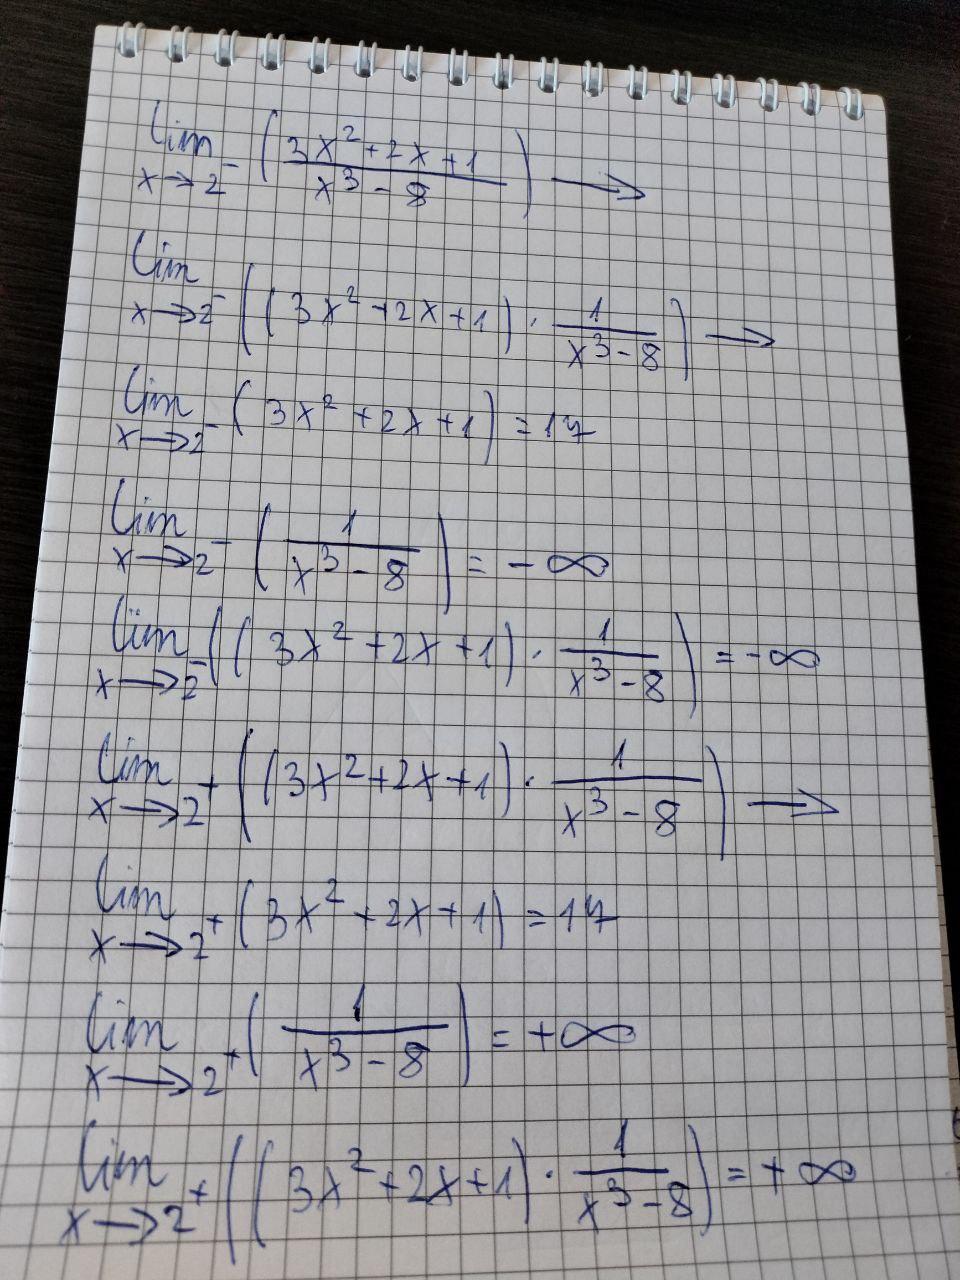 lim x→2⁻ ( (3x² + 2x + 1)/(x³ - 8) ) →
lim x→2⁻ ( (3x² + 2x + 1) · 1/(x³ - 8) ) →
lim x→2⁻ ( 3x² + 2x + 1 ) = 17
lim x→2⁻ ( 1/(x³ - 8) ) = - ∞
lim x→2⁻ ( ( 3x² + 2x + 1 ) · 1/(x³ - 8) ) = - ∞
lim x→2⁺ ( ( 3x² + 2x + 1 ) · 1/(x³ - 8) ) →
lim x→2⁺ ( 3x² + 2x + 1 ) = 17
lim x→2⁺ ( 1/(x³ - 8) ) = + ∞
lim x→2⁺ ( ( 3x² + 2x + 1 ) · 1/(x³ - 8) ) = + ∞